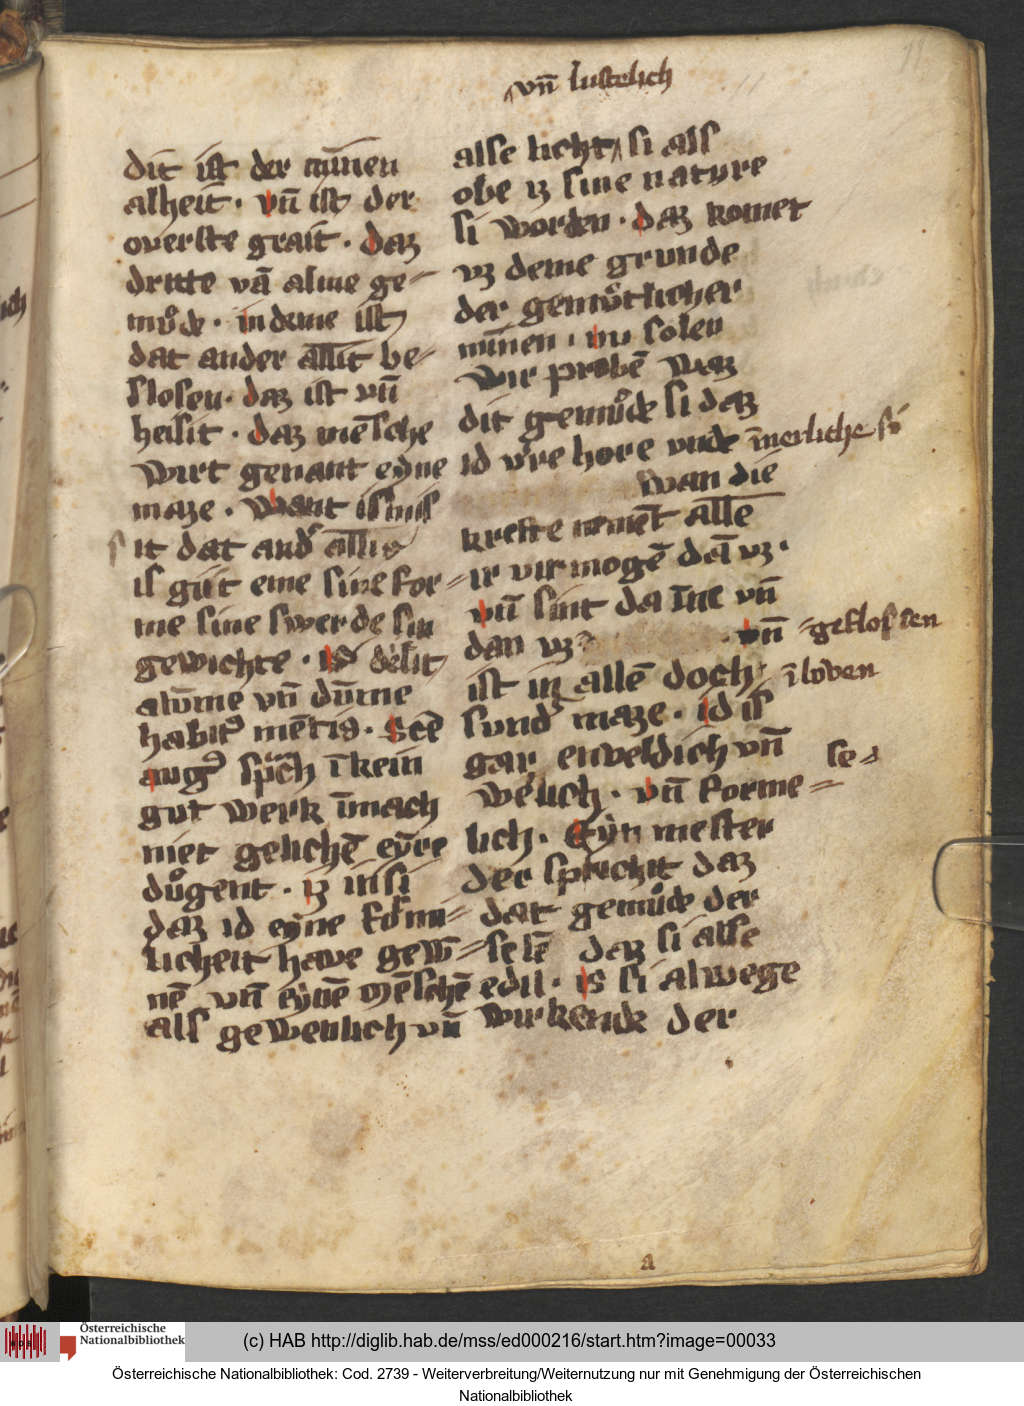 vn̄ lustelich
dit ist der mīnen
alheit̄. vn̄ ist der
overste grait. daz
dritte vā alme ge-
můde. in deme ist
dat ander allit be-
slosen. daz ist vn̄
heisit. daz mēsche
wirt genant eyne
maze. want is mis
sit dat and' allis
is giit eme sine for-
me sine swerde sin
gewichte.
atūme vn̄ dūme
habit' mētis. Scē
aug' sp̄ch ī kein
gut werk īmach
niet gelichē eyre
důgent. iz in si
daz id eyne formi-
licheit have gew̄-
nē vn̄ eynē mēschē
als gewenlich vn̄
alse licht si als
obe iz sine nature
si worden. daz komet
vz deme grunde
der gemůtlicher
mīnen. nu solen
wir probē waz
dit gemůde si daz
id v're hore unde īnerliche si
wan die
krefte nemēt alle
ir virmogē dā vz.
vn̄ sint da īne vn̄
dan vz vn̄ -geflosten
ist in allē doch ī loven
sund' maze. id is
gar enveldich vn̄
welich. vn̄ forme= se-
lich. Eyn mester
der spricht daz
dat gemůde der
selē daz si alse
edil. is si alwege
wirkende der
a
(c) HAB http://diglib.hab.de/mss/ed000216/start.htm?image=00033
Österreichische
Nationalbibliothek
Österreichische Nationalbibliothek: Cod. 2739 - Weiterverbreitung/Weiternutzung nur mit Genehmigung der Österreichischen
Nationalbibliothek